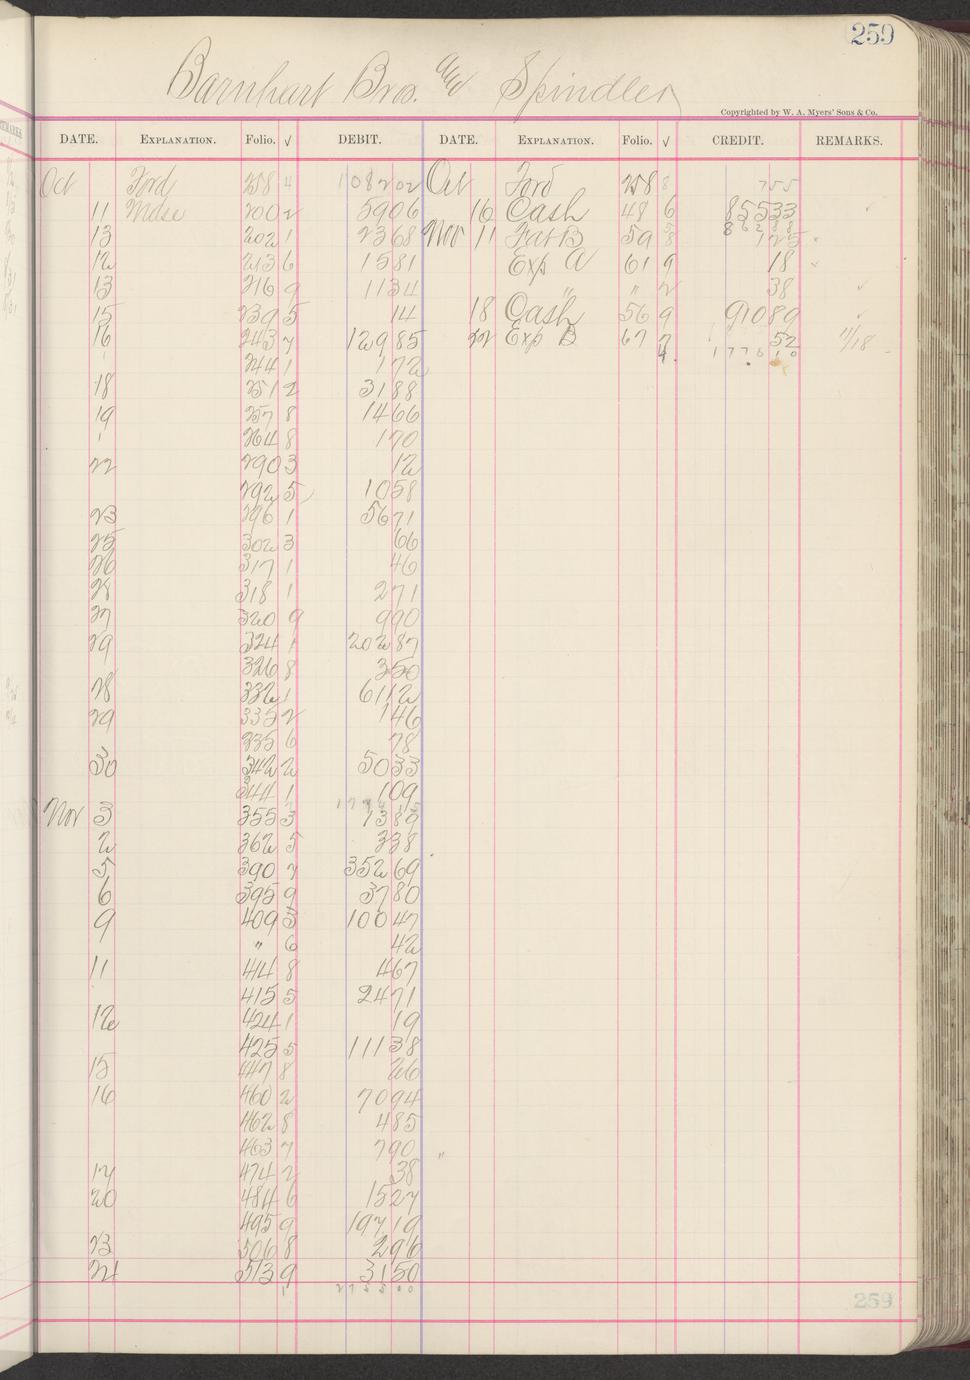 259
Barnhart Bros. and Spindler
Copyrighted by W. A. Myers' Sons & Co.
DATE. EXPLANATION. Folio. √ DEBIT. DATE. EXPLANATION. Folio. √ CREDIT. REMARKS.
Oct Ford 258 4 1082 02 Oct Ford 258 8 7 55
11 Mdse 200 2 59 06 16 Cash 48 6 855 33 ✓
13 202 1 23 68 Nov 11 Fat B 59 8 1 25
12 213 6 15 81 Exp A 61 9 18
13 216 9 11 34 " " 2 38 ✓
15 239 5 14 18 Cash 56 9 910 89 ✓
16 243 7 129 85 22 Exp B 67 7 52 11/18
' 244 1 1 72 4 1776 10
18 251 2 31 88
19 257 8 14 66
' 264 8 1 70
22 290 3 12
292 5 10 58
23 296 1 56 71
25 302 3 66
26 317 1 46
28 318 1 2 71
27 320 9 9 90
29 324 1 202 87
326 8 3 50
28 332 1 61 12
29 335 2 1 46
335 6 78
30 342 2 50 33
344 1 1 09
Nov 3 355 3 13 89
2 362 5 3 38
5 390 7 352 69
6 395 9 37 80
9 409 3 100 47
" 6 42
11 414 8 4 67
415 5 24 71
12 424 1 19
425 5 111 38
15 447 8 26
16 460 2 70 94
462 8 4 85
463 7 7 90 "
17 474 2 38
20 484 6 15 27
495 9 197 19
23 506 8 2 96
24 513 9 31 50
259